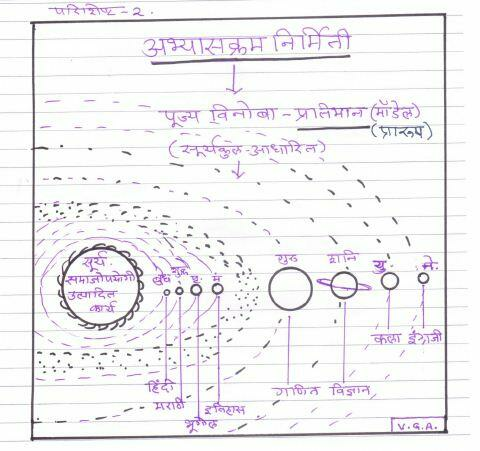 परिशिष्ट-2.
अभ्यासक्रम निर्मिती
पूज्य विनोबा - प्रतिमान (मॉडेल)
(प्रारूप)
(सूर्यकुल-आधारित)
सूर्य
समाजोपयोगी
उत्पादित
कार्य
बुध शुक्र पृ. मं गुरु शनि यु. ने.
कला इंग्रजी
हिंदी गणित विज्ञान
मराठी इतिहास
भूगोल
V.G.A.